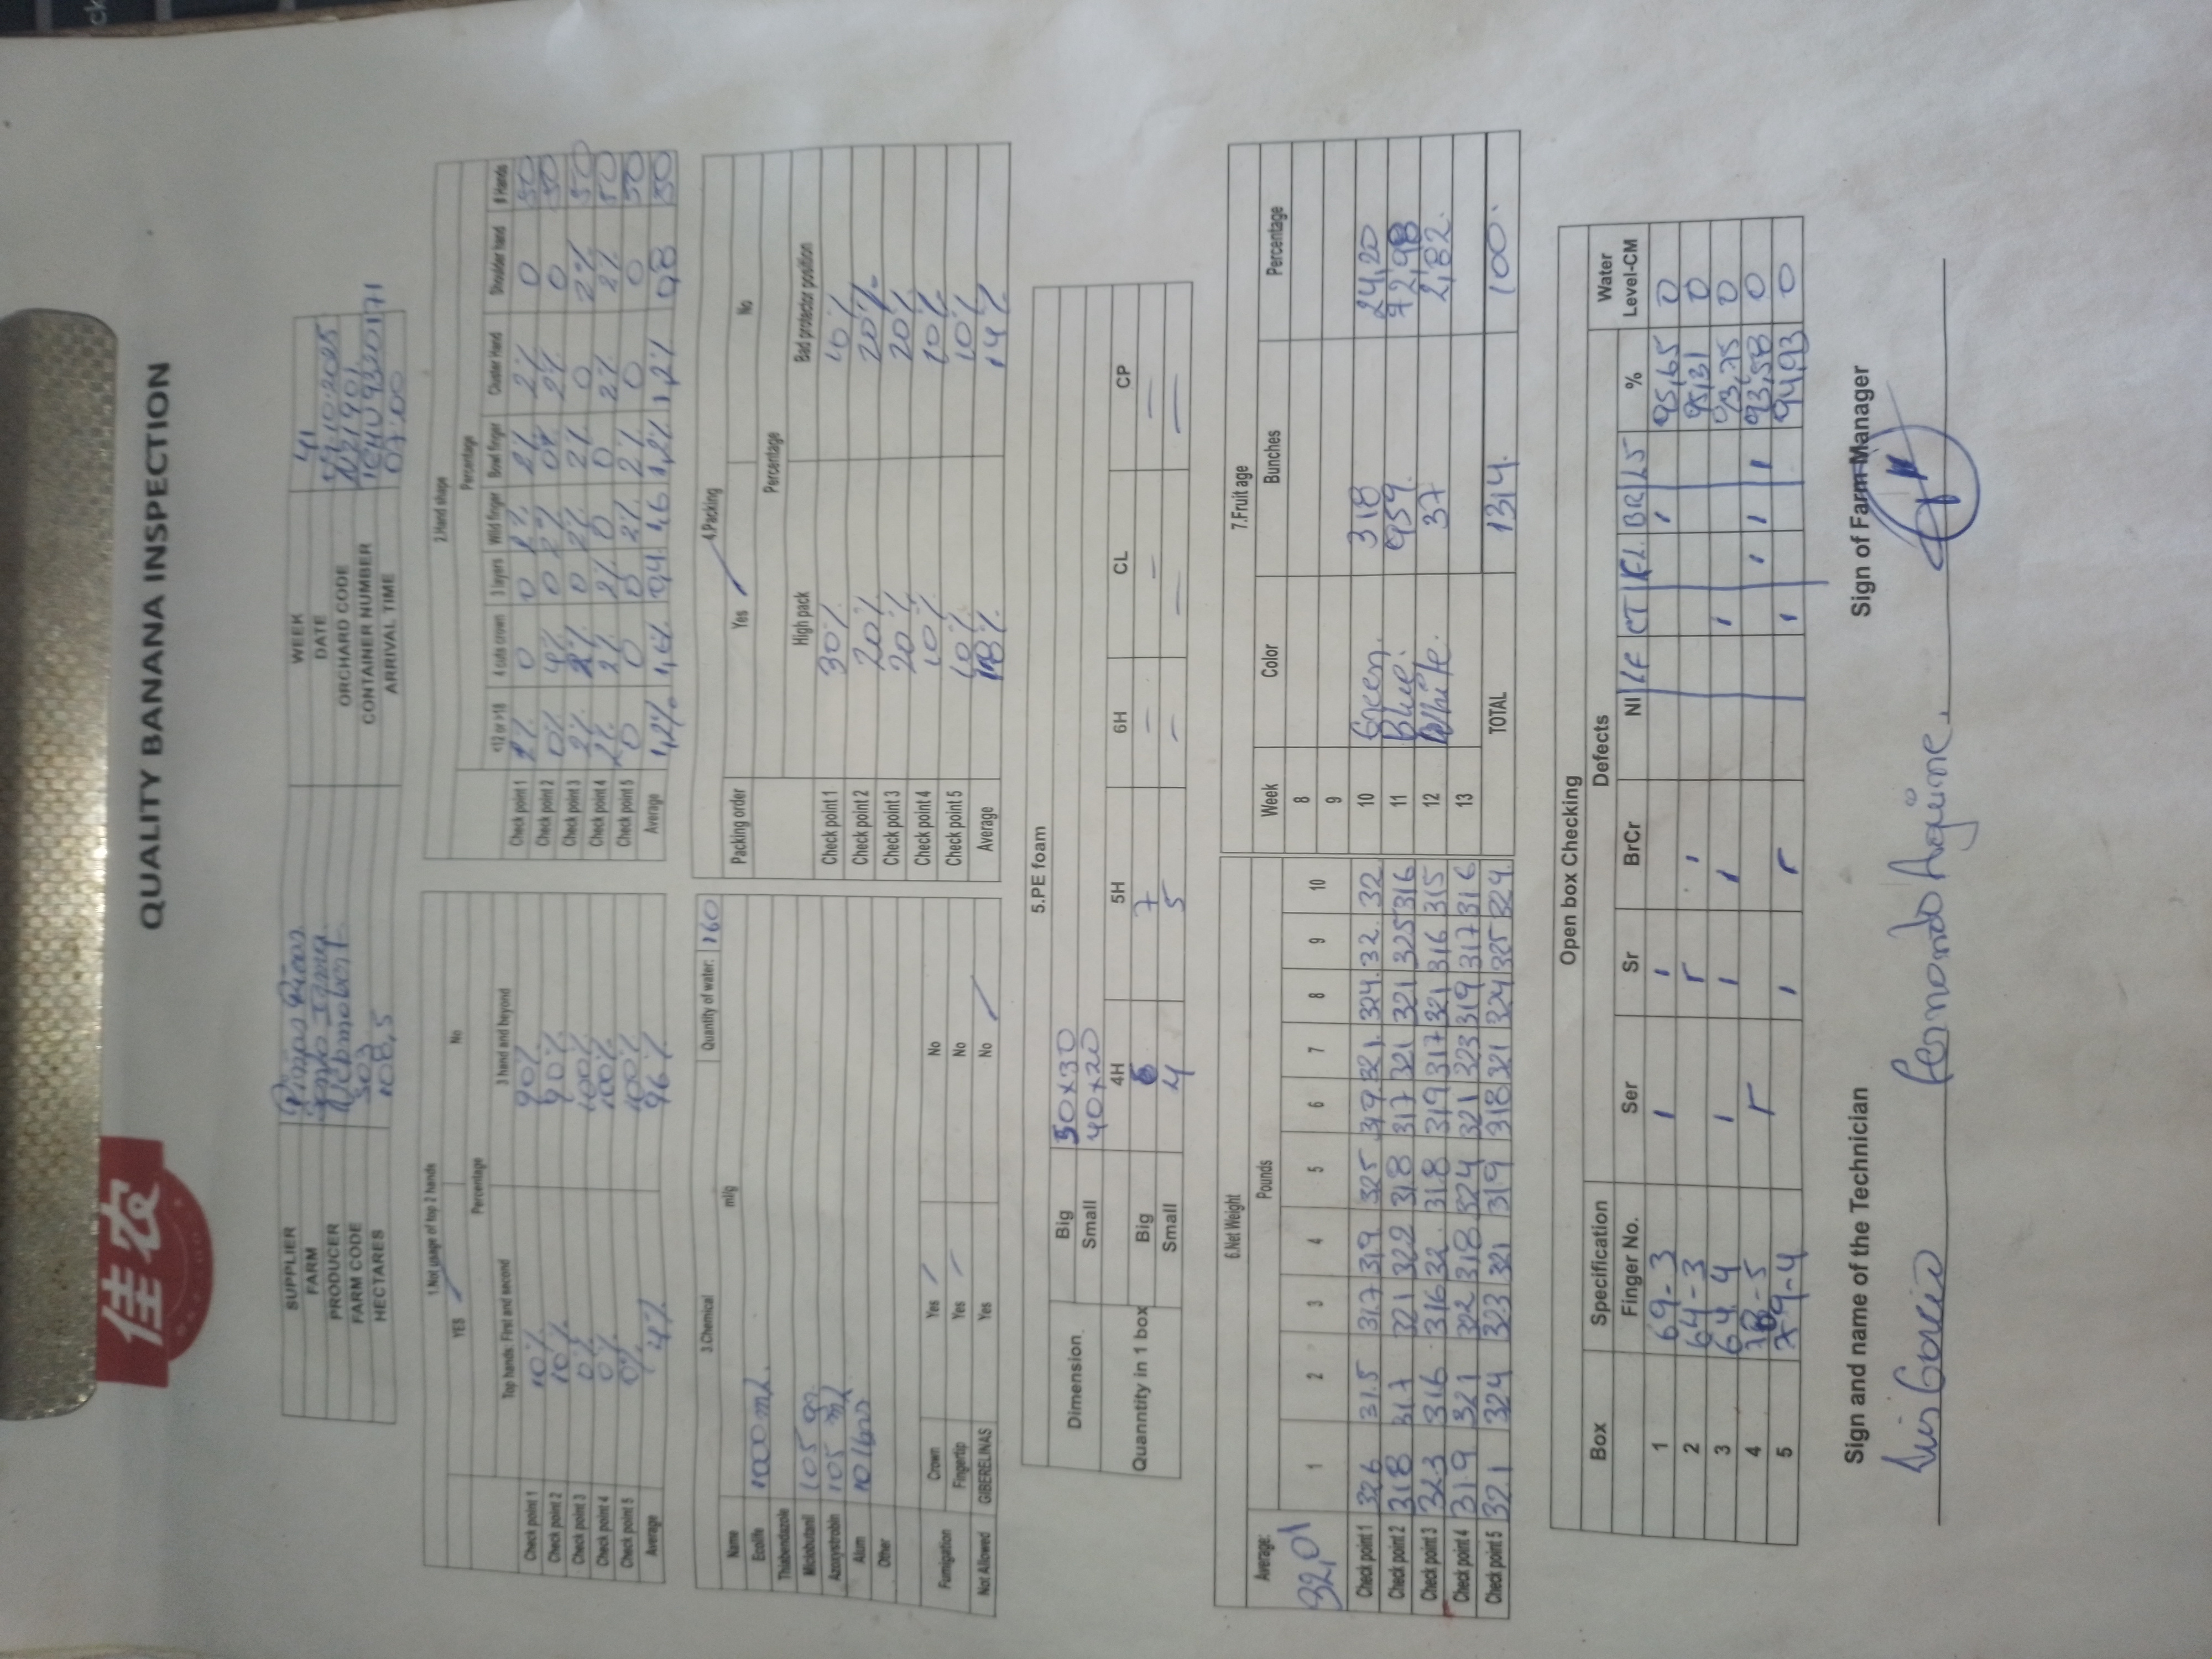 佳农
QUALITY BANANA INSPECTION
SUPPLIER Ricas WEEK 41
FARM DATE 10.2025
PRODUCER ORCHARD CODE N21901
FARM CODE 303 CONTAINER NUMBER 9320171
HECTARES 108,5 ARRIVAL TIME 07:00
1.Not usage of top 2 hands
YES ✓ No
Percentage
Top hands: First and second 3 hand and beyond
Check point 1 10% 90%
Check point 2 10% 90%
Check point 3 0% 100%
Check point 4 0% 100%
Check point 5 0% 100%
Average 4% 96%
2.Hand shape
Percentage
<12 or >18 4 cuts crown 3 layers Wild finger Bowl finger Cluster Hand Shoulder hand # Hands
Check point 1 2% 0 0 2% 2% 2% 0 50
Check point 2 0% 4% 0 2% 0% 2% 0 50
Check point 3 2% 2% 0 2% 2% 0 2% 50
Check point 4 2% 2% 2% 0 0 2% 2% 50
Check point 5 0 0 0 2% 2% 0 0 50
Average 1,2% 1,6% 0,4 1,6 1,2% 1,2% 0,8 50
3.Chemical Quantity of water: 160
Name ml/g
Ecolife 1000 ml.
Thiabendazole
Miclobutanil 105 gr
Azoxystrobin 105 ml
Alum 10 lbrs
Other
Fumipation Crown Yes ✓ No
Fingertip Yes ✓ No
Not Allowed GIBERELINAS Yes No ✓
4.Packing
Packing order Yes ✓ No
Percentage
High pack Bad protector position
Check point 1 30% 10%
Check point 2 20% 20%
Check point 3 20% 20%
Check point 4 10% 10%
Check point 5 10% 10%
Average 18% 14%
5.PE foam
Dimension Big 50x30
Small 40x20
4H 5H 6H CL CP
Quanntity in 1 box Big 6 7 – – –
Small 4 5 – – –
6.Net Weight
Average: Pounds
32,01 1 2 3 4 5 6 7 8 9 10
Check point 1 32.6 31.5 31.7 31.9 32.5 31.9 32.1 32.4 32. 32
Check point 2 31.8 31.7 32.1 32.2 31.8 31.7 32.1 32.1 32.5 31.6
Check point 3 32.3 31.6 31.6 32. 31.8 31.9 31.7 32.1 31.6 31.5
Check point 4 31.9 32.1 32.2 31.8 32.4 32.1 32.3 31.9 31.7 31.6
Check point 5 32.1 32.4 32.3 32.1 31.9 31.8 32.1 32.4 32.5 32.4
7.Fruit age
Week Color Bunches Percentage
8
9
10 Green. 318 24,20
11 Blue. 959. 72,98
12 White. 37 2,82.
13
TOTAL 1314. 100.
Open box Checking
Box Specification Defects Water
Finger No. Ser Sr BrCr NI LF CT FL. BR LS % Level-CM
1 69-3 I I I 95,65 0
2 64-3 r I 95,31 0
3 64-4 I I I I 93,75 0
4 78-5 r I I I 93,58 0
5 79-4 I r I 94,93 0
Sign and name of the Technician Sign of Farm Manager
Luis Garcia Fernando Aguirre.